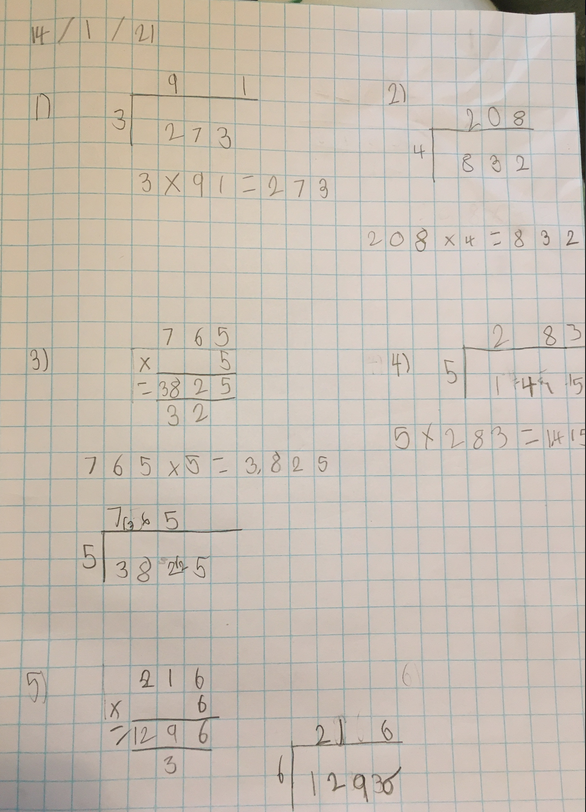 14 / 1 / 21
1)
9 1
3 273
3 × 91 = 273
2)
208
4 832
208 × 4 = 832
3)
765
× 5
= 3825
32
765 × 5 = 3,825
4)
2 83
5 1 4 15
5 × 283 = 1415
5 38 5
5)
216
× 6
= 1296
3
21 6
6 129